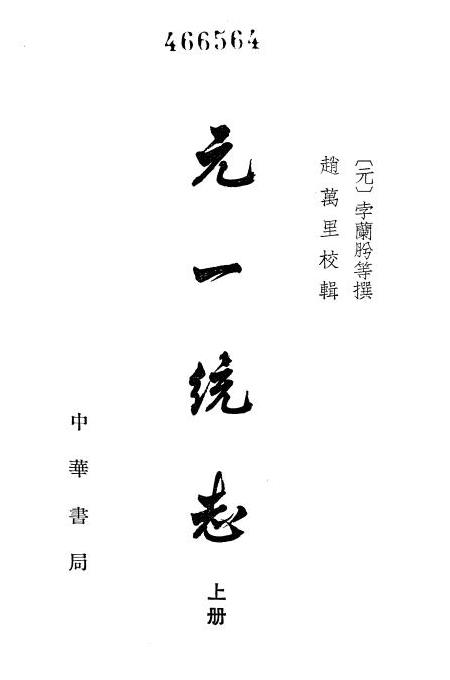 466564
〔元〕孛蘭肹等撰
趙萬里校輯
元一统志
上册
中華書局